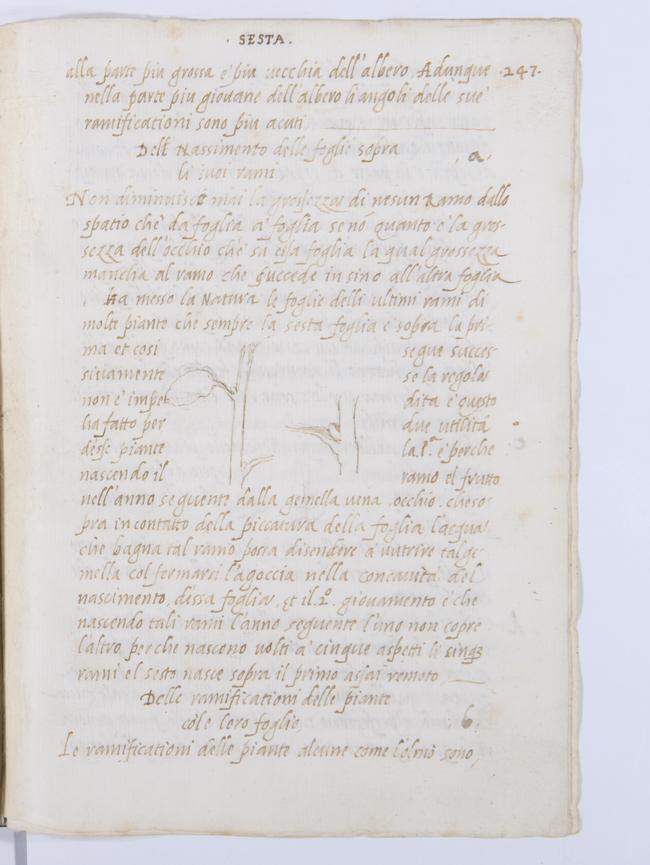 . SESTA .
alla parte piu grossa e' piu vecchia dell'albero, Adunque .247.
nella parte piu giovane dell'albero li angoli delle sue
ramificationi sono piu acuti
Dell Nassimento delle foglie sopra
li suoi rami a,
Non diminuisce mai la grossezza di nesun Ramo dallo
spatio che' da foglia a' foglia se nō quanto e' la gros-
sezza dell'occhio che' su essa foglia la qual grossezza
mancha al ramo che succede in sino all'altra foglia
Ha messo la Natura le foglie delli ultimi rami di
molte piante che sempre la sesta foglia e' sopra la pri-
ma et cosi segue succes-
sivamente se la regola
non e' impe dita e' questo
ha fatto per due utilità
desse piante la p.ª e' perche
nascendo il ramo el frutto
nell'anno seguente dalla gemella vena, occhio, che so-
pra in contatto della piccatura della foglia l'acqua
che bagna tal ramo possa disendere a' nutrire tal ge-
mella col fermarsi l'agoccia nella concavità del
nascimento, dessa foglia, et il .2º. giovamento e' che
nascendo tali rami l'anno seguente l'uno non copre
l'altro perche nasceno volti a' cinque aspetti li cinq3
rami el sesto nasce sopra il primo assai remoto
Delle ramificationi delle piante
cōle loro foglie, b,
Le ramificationi delle piante alcune come l'olmo sono,